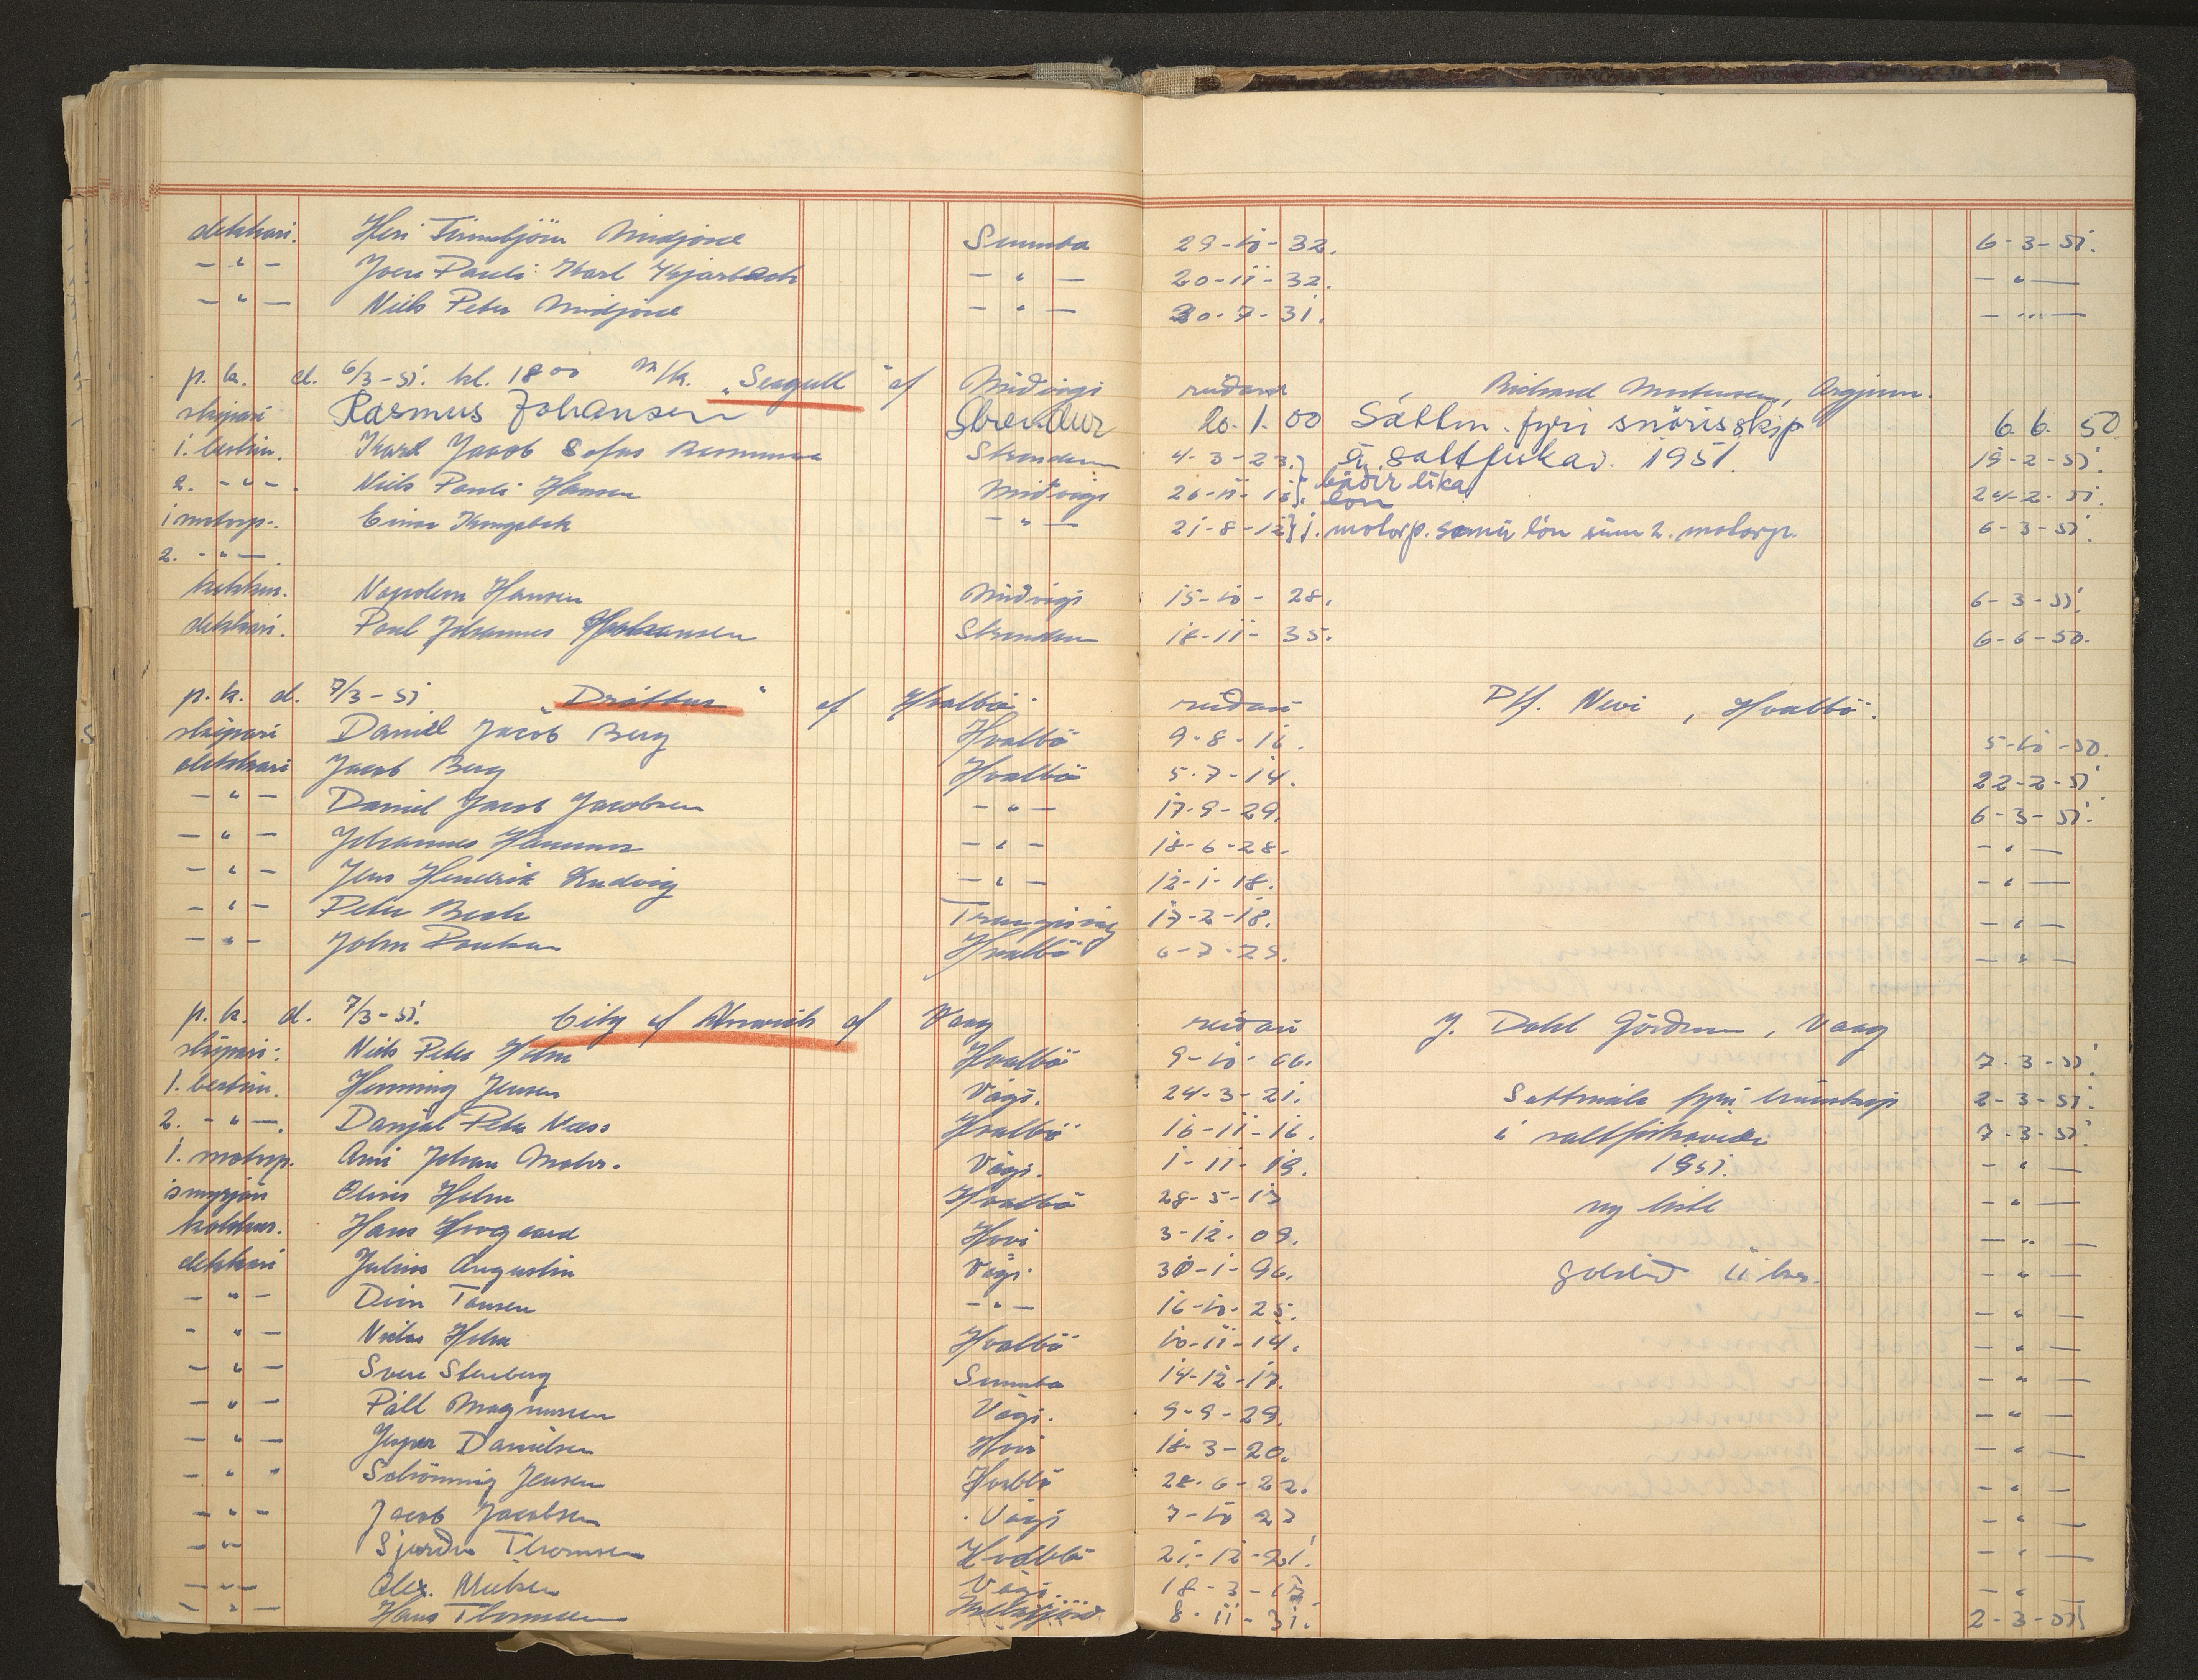 dekkari. Heri Finnbjörn Midjord Sumba 29-10-32. 6-3-51.
-"- Joen Pauli Karl Kjærbæck -"- 20-11-32. -"-
-"- Niels Peter Midjord -"- 30-7-31. -"-
p. k. d. 6/3-51. kl. 18 00 M/k. "Seagull" af Miðvági reiðari Richard Mortensen, Argjum.
skipari Rasmus Johansen Strendur 20. 1. 00 Sáttm. fyri snørisskip 6. 6. 50
1. bestim. Karl Jacob Sofus Strendum 4-3-23. á saltfiskav. 1951. 19-2-51.
2. -"-. Niels Pauli Hansen Miðvági báðir líka 24-2-51.
lön
1 motorp. Einar Kungsbak -"- 21-8-12 1. motorp. somu lön sum 2. motorp. 6-3-51.
2. -"-
kokkur. Napoleon Hansen Miðvági 15-10-28. 6-3-51.
dekkari. Poul Johannes Johansen Strendum 18-11-35. 6-6-50.
p. k. d. 7/3-51 "Dróttur" af Hvalbö reiðari P/f. Nevi, Hvalbö.
skipari Daniel Jacob Berg Hvalbö 9-8-16. 5-10-50.
dekkari Jacob Berg Hvalbö 5-7-14. 22-2-51
-"- Daniel Jacob Jacobsen -"- 17-9-29. 6-3-51.
-"- Johannes Hammer -"- 18-6-28. -"-
-"- Jens Hendrik Ludvig -"- 12-1-18. -"-
-"- Peter Bech Trangisvág 17-2-18. -"-
-"- John Poulsen Hvalbö 6-7-25. -"-
p. k. d. 7/3-51. City of af Vaag reiðari J. Dahl Görðum, Vaag
skipari: Niels Peter Holm Hvalbö 9-10-06. 7-3-51.
1. bestim. Henning Jensen Vági. 24-3-21. Sattmála fyri línuskip 2-3-51.
2. -"-. Danjal Peter Næss Hvalbö 16-11-16. í saltfiskaveiði 7-3-51.
1. motorp. Arni Johan Mohr. Vági. 1-11-19. 1951. -"-
ismyrjari Oliver Holm Hvalbö 28-5-15 ny listi -"-
kokkur. Hans Hovgaard Hovi 3-12-09. -"-
dekkari Julius Augustin Vági. 30-1-96. goldið 11 kr. -"-
-"- Dion Tausen -"- 16-10-25. -"-
-"- Niclas Holm Hvalbö 10-11-14. -"-
-"- Sverre Stenberg Sumba 14-12-17. -"-
-"- Páll Magnussen Vági. 9-9-29. -"-
-"- Jesper Danielsen Hovi 18-3-20. -"-
-"- Schönning Jensen Hvalbö 28-6-22. -"-
-"- Jacob Jacobsen Vági 7-10 27 -"-
-"- Sjurður Thomsen Hvalbö 21-12-21. -"-
-"- Alex. Nielsen Vági. 18-3-17 -"-
-"- Hans Thomsen 8-11-31. 2-3-51